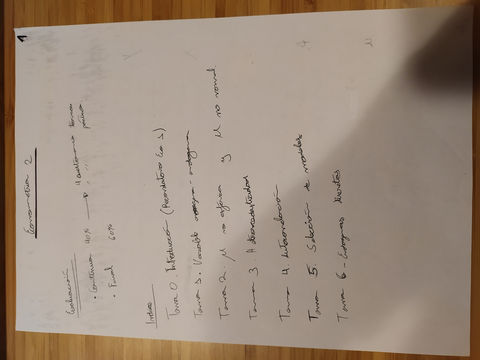 1
Econometría 2
Evaluación
• Continua 40% → 4 cuestionarios teoría
práctica
• Final 60%
Índice
Tema 0. Introducción (Recordatorio Eco 1)
Tema 1. Variable endógena
Tema 2. μ no esférica y μ no normal.
Tema 3 Heterocedasticidad
Tema 4 Autocorrelación
Tema 5. Selección de modelos
Tema 6 -